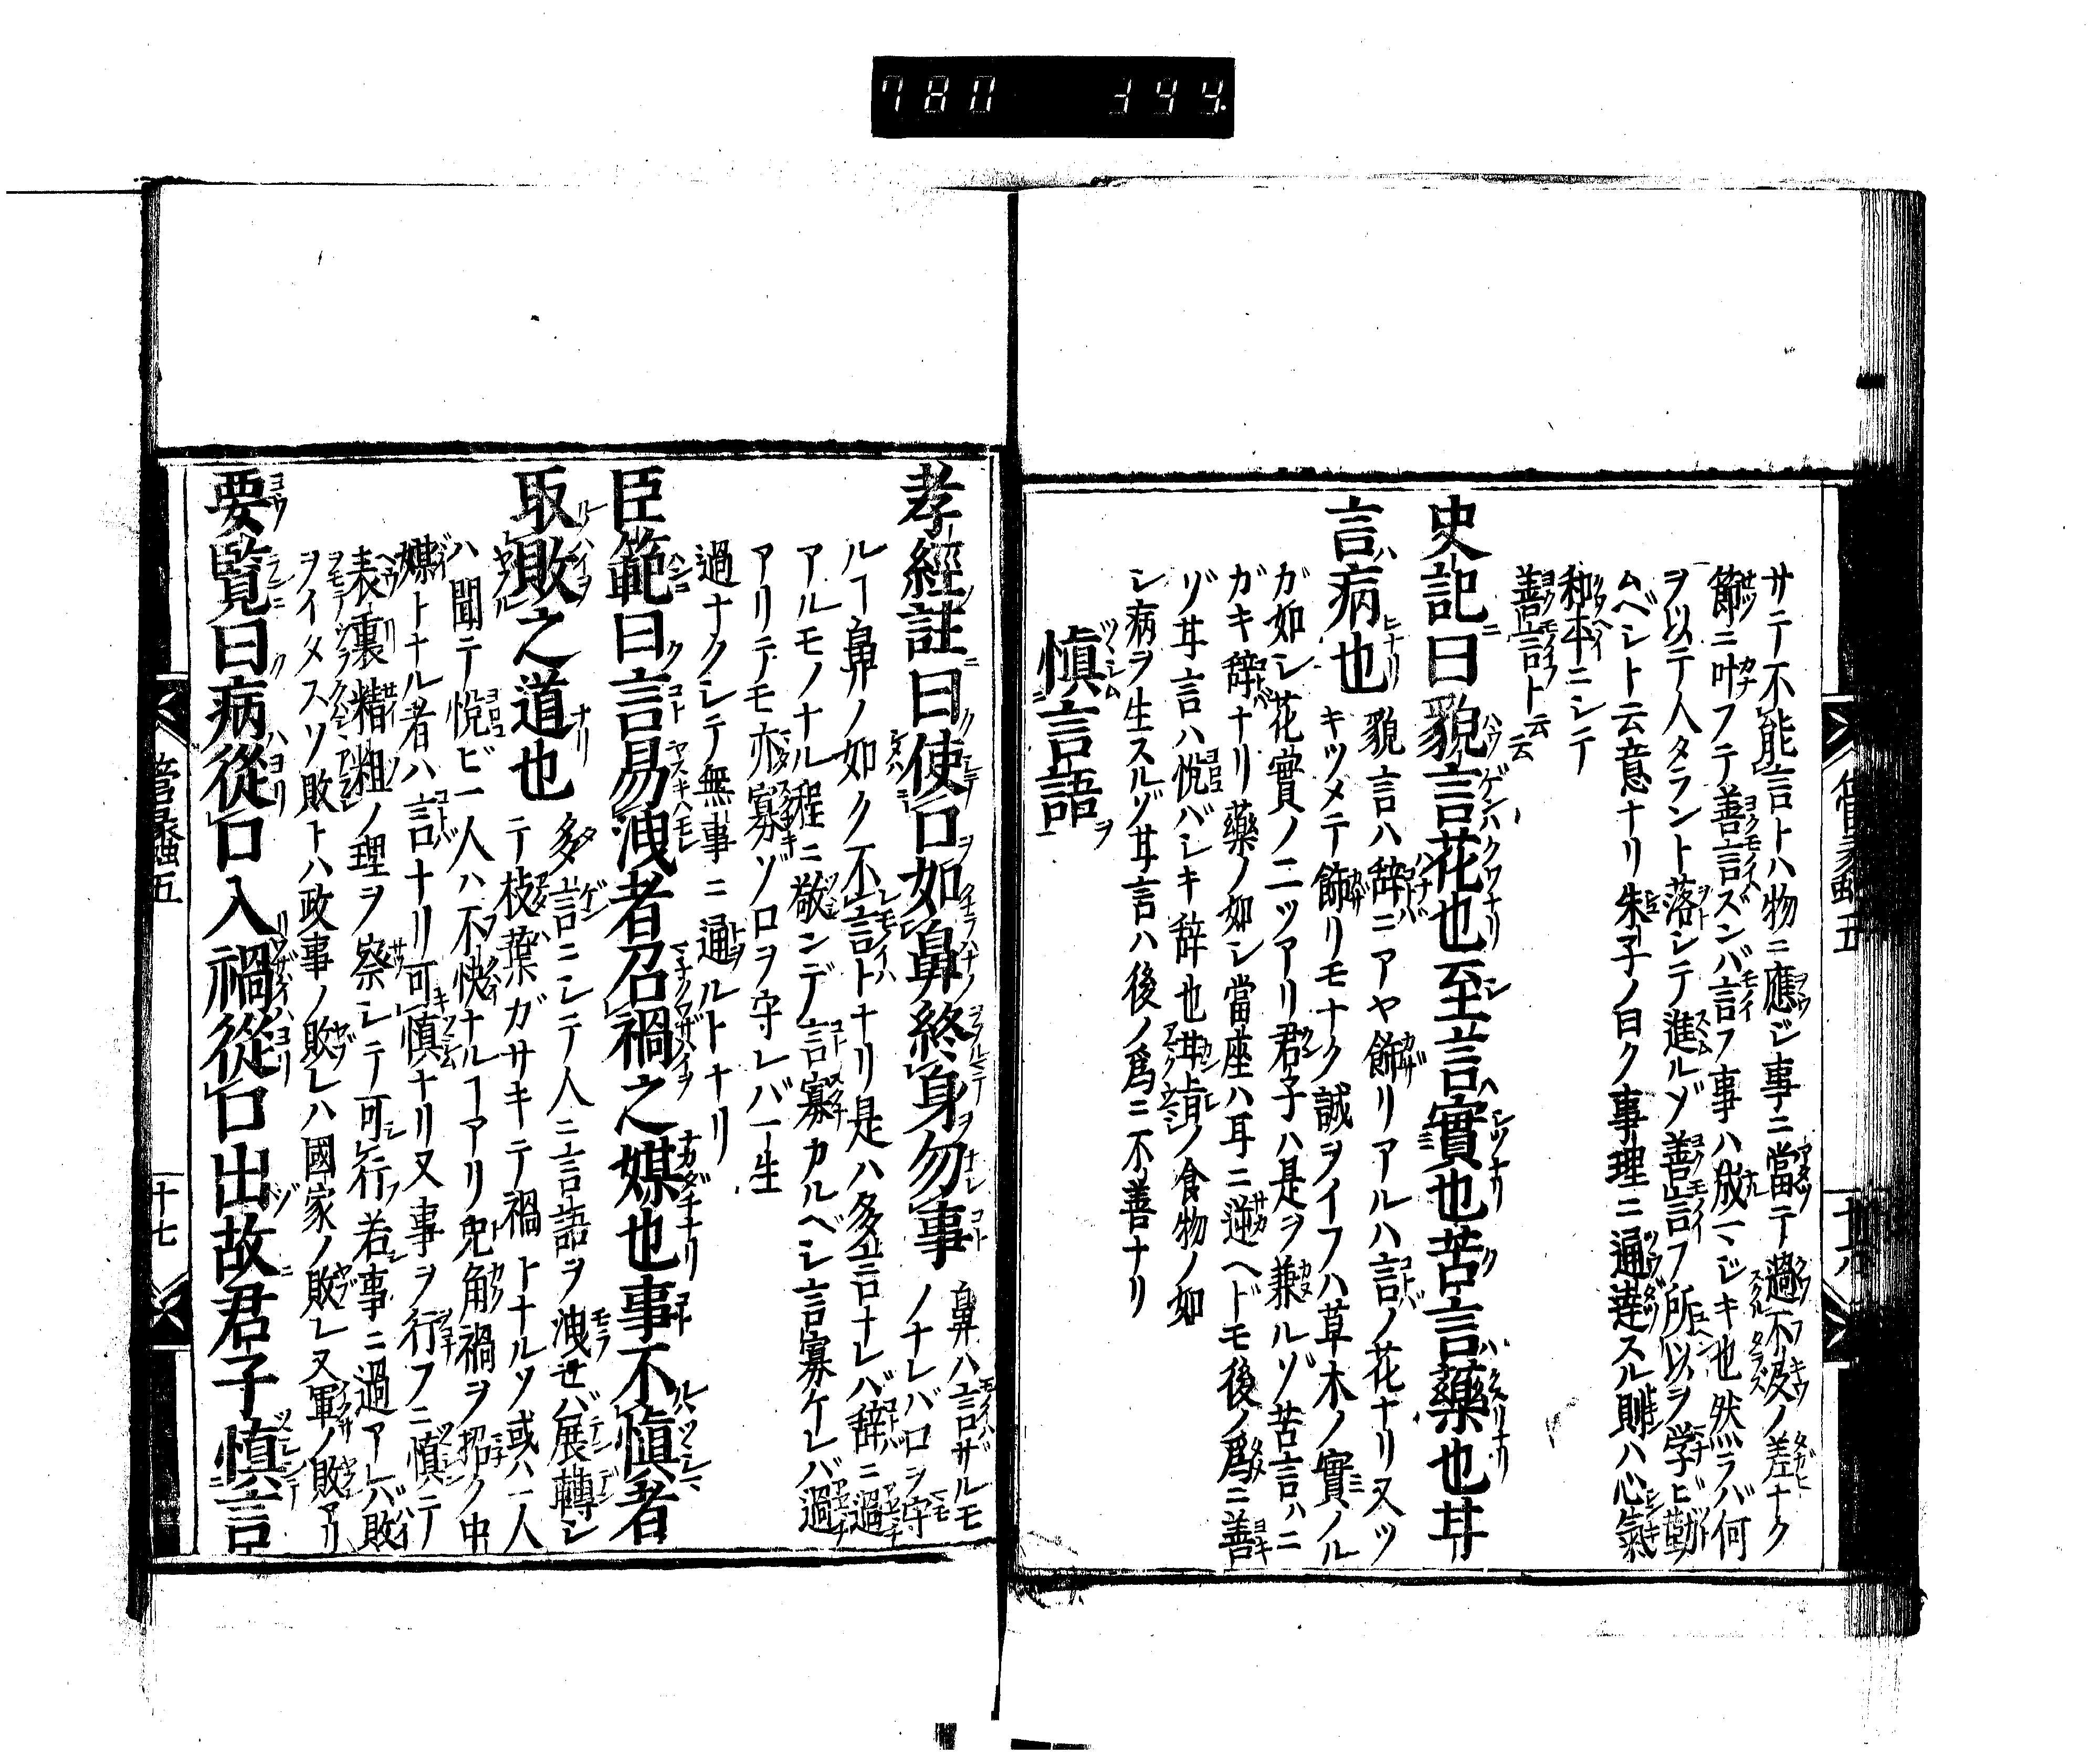 780 394
管蠡五
十六
サテ不能言トハ物ニ應ジ事ニ當テ過不及ノ差ナク
節ニ叶フテ善言ズンバ言フ事ハ成マジキ也然ラバ何
ヲ以テ人タラント落シテ進ルゾ善言フ所以ヲ学ビ勤
ムベシト云意ナリ朱子ノ曰ク事理ニ通達スル則ハ心氣
和平ニシテ
善言ト云云
史記曰貌言花也至言實也苦言藥也甘
言病也 貌言ハ辞ニアヤ飾リアルハ言ノ花ナリ又ツ
キツメテ飾リモナク誠ヲイフハ草木ノ實ノル
ガ如シ花實ノ二ツアリ君子ハ是ヲ兼ルゾ苦言ハニ
ガキ辞ナリ藥ノ如シ當座ハ耳ニ逆ヘドモ後ノ爲ニ善
ゾ甘言ハ悦バシキ辞也甘ノ食物ノ如
シ病ヲ生スルゾ甘言ハ後ノ爲ニ不善ナリ
慎言語
孝經註曰使口如鼻終身勿事 鼻ハ言ザルモ
ノナレバロヲ守
ルヿ鼻ノ如ク不言トナリ是ハ多言ナレバ辞ニ過
アルモノナル程ニ敬ンデ言寡カルベシ言寡ケレバ過
アリテモ亦寡ゾロヲ守レバ一生
過ナクシテ無事ニ通ルトナリ
臣範曰言易洩者召禍之媒也事不慎者
取敗之道也 多言ニシテ人ニ言語ヲ洩せバ展轉シ
テ枝葉ガサキテ禍トナルソ或ハ一人
ハ聞テ悦ビ一人ハ不快ナルヿアリ兎角禍ヲ招ク中
媒トナル者ハ言ナリ可慎ナリ又事ヲ行フニ慎テ
表裏精粗ノ理ヲ察シテ可行若事ニ過アレバ敗
ヲイタスソ敗トハ政事ノ敗レハ國家ノ敗レ又軍ノ敗アリ
要覧曰病從口入禍從口出故君子慎言
管蠡五
十七